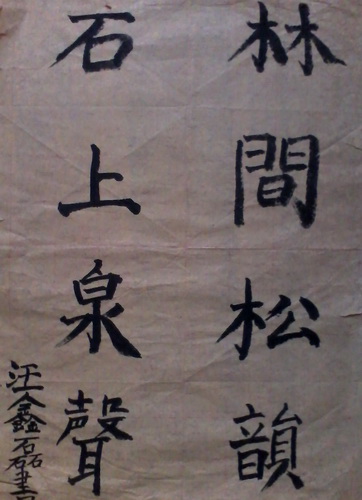 林間松韻
石上泉聲
汪鑫磊書